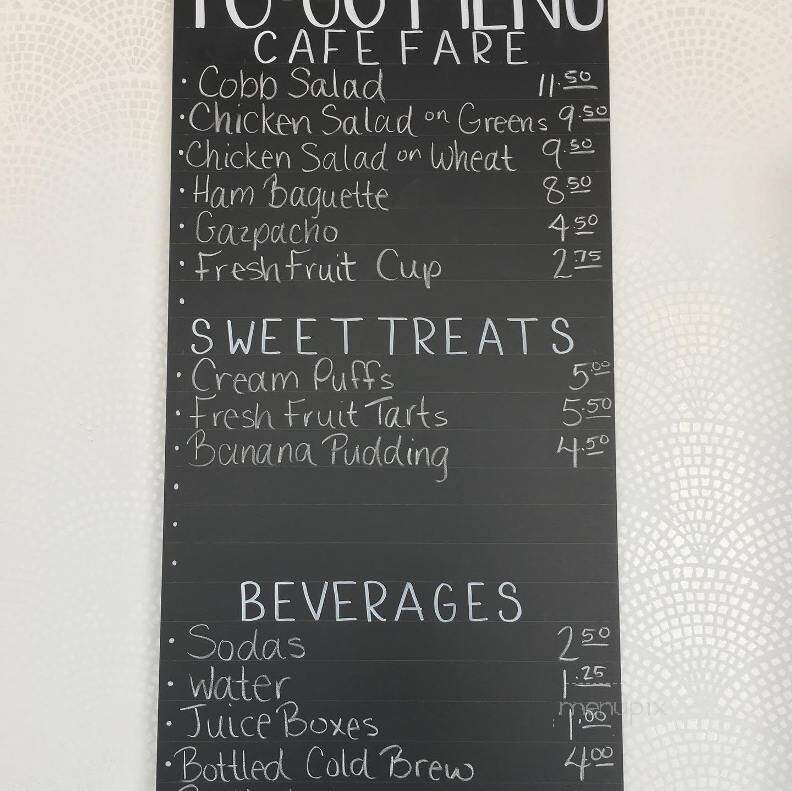 TO-GO MENU
CAFE FARE
· Cobb Salad 11.50
· Chicken Salad on Greens 9.50
· Chicken Salad on Wheat 9.50
· Ham Baguette 8.50
· Gazpacho 4.50
· Fresh Fruit Cup 2.75
·
SWEET TREATS
· Cream Puffs 5.00
· Fresh Fruit Tarts 5.50
· Banana Pudding 4.50
·
·
·
BEVERAGES
· Sodas 2.50
· Water 1.25
menupix
· Juice Boxes 1.00
· Bottled Cold Brew 4.00